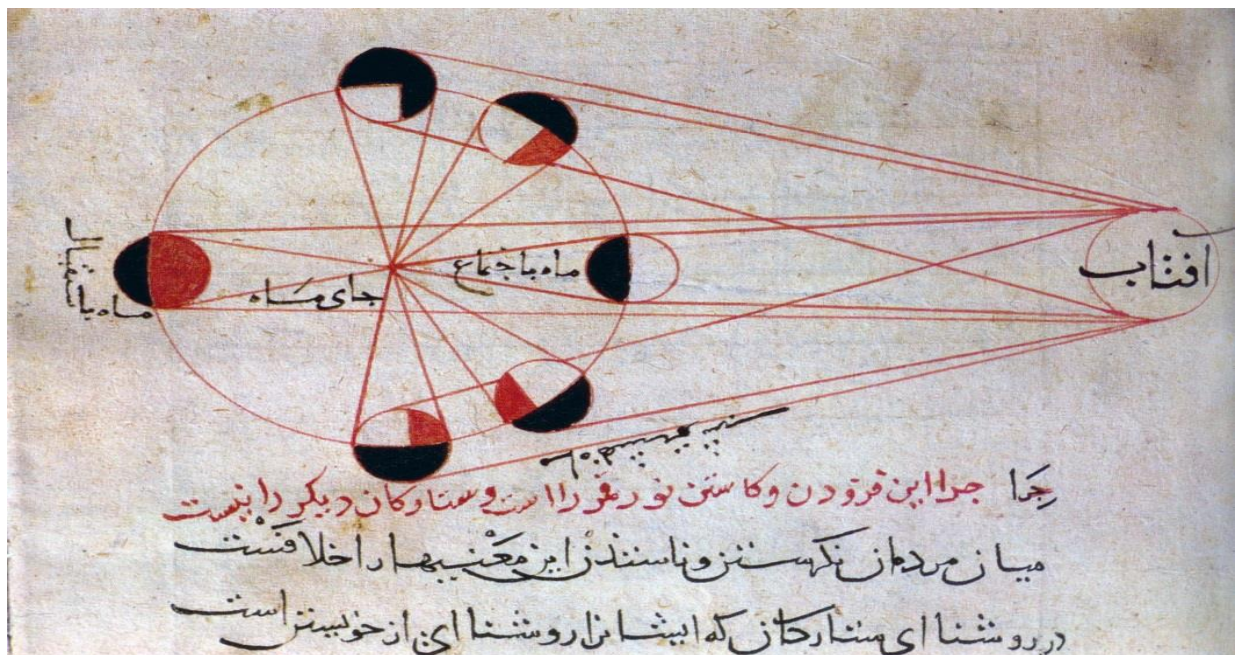 افتاب
ماه باجتماع
جای ماه
ماه باستقبال
چرا جرا این فزودن وکاستن نور قمر را است وستارکان دیکر را نیست
میان مردمان نکرستن و اندر این معنیها را خلافست
در روشنا ای ستارکان که ایشانرا روشنا ای از خویشتن است